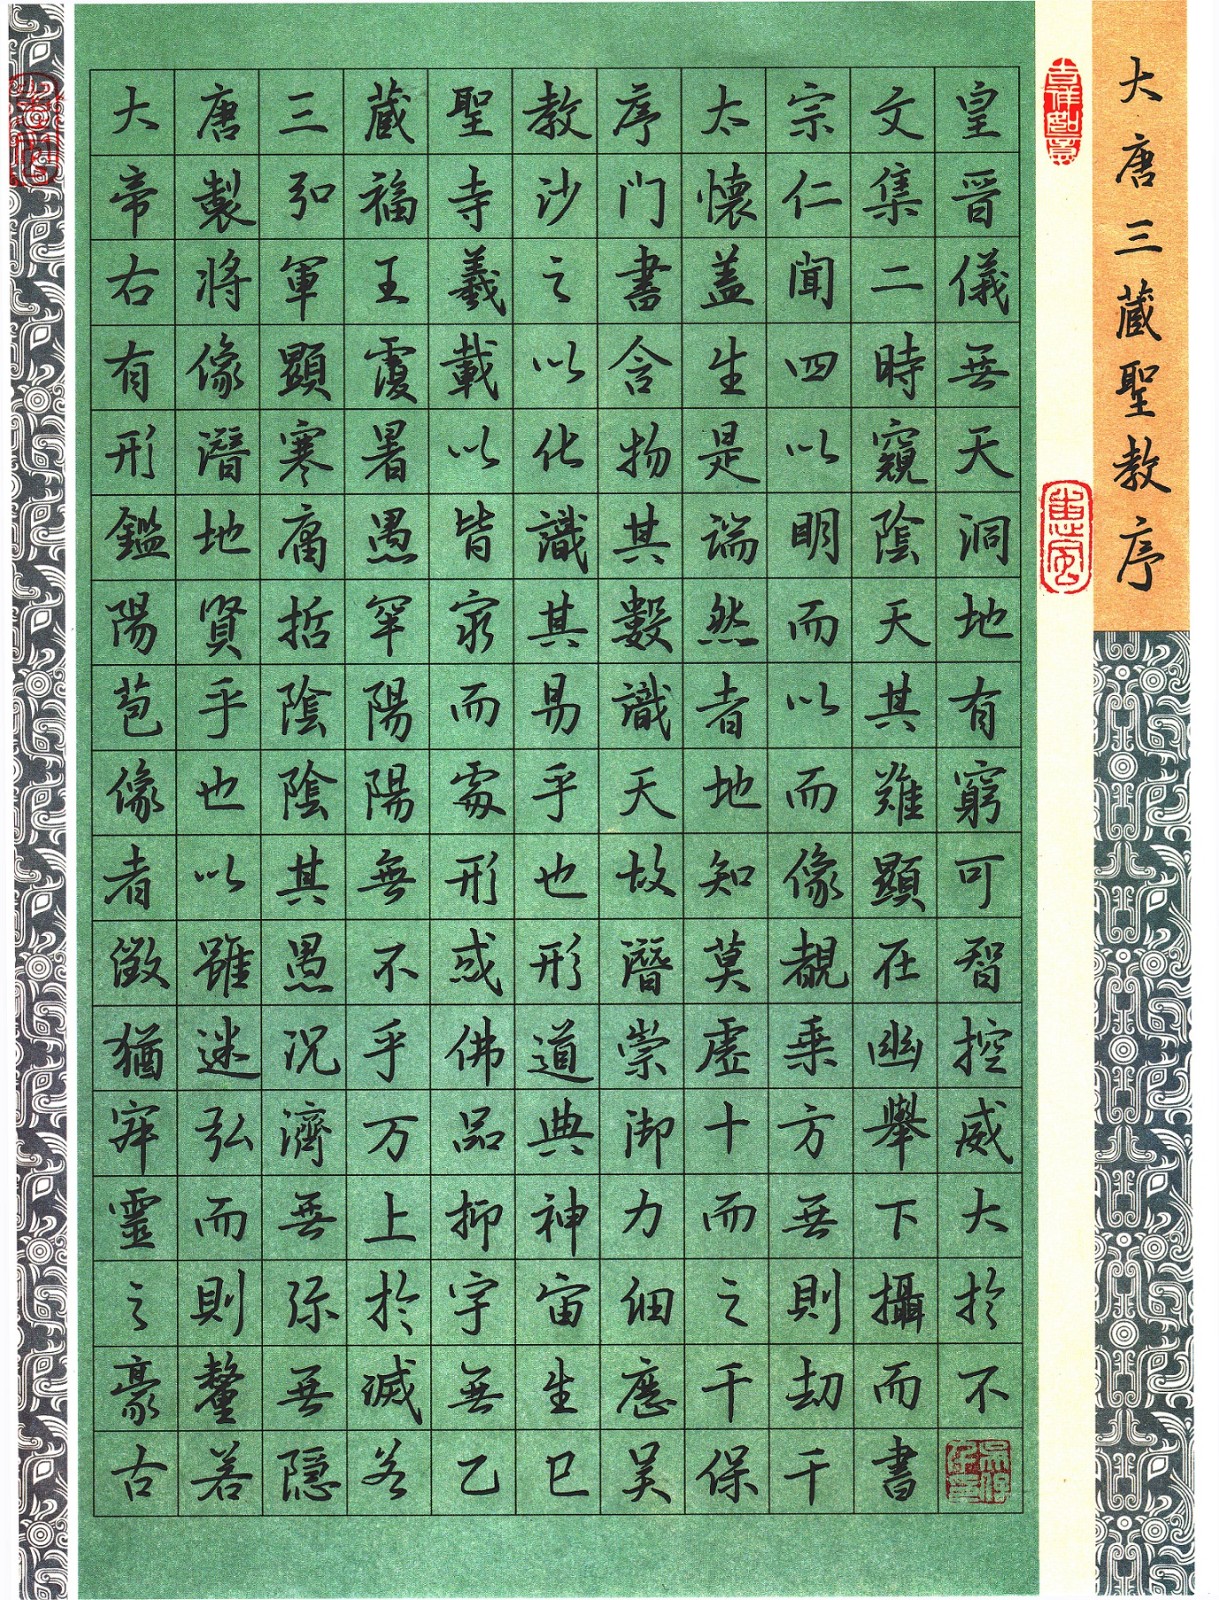 大唐三藏聖教序
吉祥如意
大唐三藏聖教序太宗文皇
帝製弘福寺沙门懷仁集晋
右將軍王羲之書盖聞二儀
有像顯覆載以含生四時無
形潛寒暑以化物是以窺天
鑑地庸愚皆識其端明陰洞
陽賢哲罕窮其數然而天地
苞乎陰陽而易識者以其有
像也陰陽處乎天地而難窮
者以其無形也故知像顯可
徵雖愚不惑形潛莫覩在智
猶迷况乎佛道崇虛乘幽控
寂弘濟万品典御十方舉威
靈而無上抑神力而無下大
之則弥於宇宙細之則攝於
豪釐無滅無生應千劫而不
古若隱若乙巳吴保千書